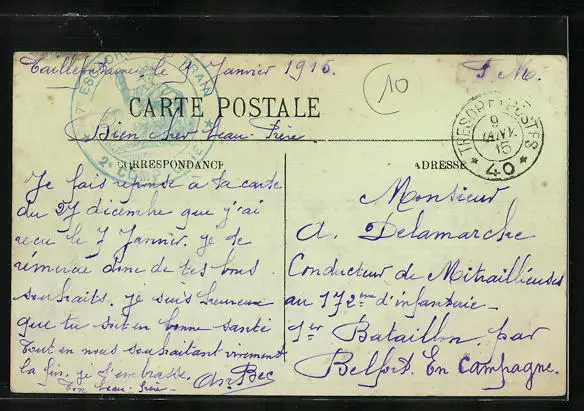 Taillefontaine, le 9 Janvier 1915.
F. M.
10
CARTE POSTALE
TRESOR ET POSTES
9
JANV.
15
* 40 *
Bien cher beau-frère
CORRESPONDANCE
Je fais reponse à ta carte
du 27 décembre que j'ai
recu le 7 Janvier. je te
rémercie donc de tes bons
souhaits. je suis heureux
que tu sois en bonne santé
Tout en nous souhaitant vivement
la fin. je t'embrasse.
Ton beau-frère
ADRESSE
Monsieur
A. Delamarche
Conducteur de Mitrailleuses
au 172me d'infanterie
1er Bataillon, par
Belfort. En Campagne.